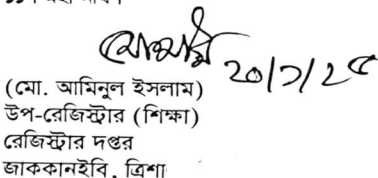 ২০/১/২৫
(মো. আমিনুল ইসলাম)
উপ-রেজিস্ট্রার (শিক্ষা)
রেজিস্ট্রার দপ্তর
জাককানইবি, ত্রিশা